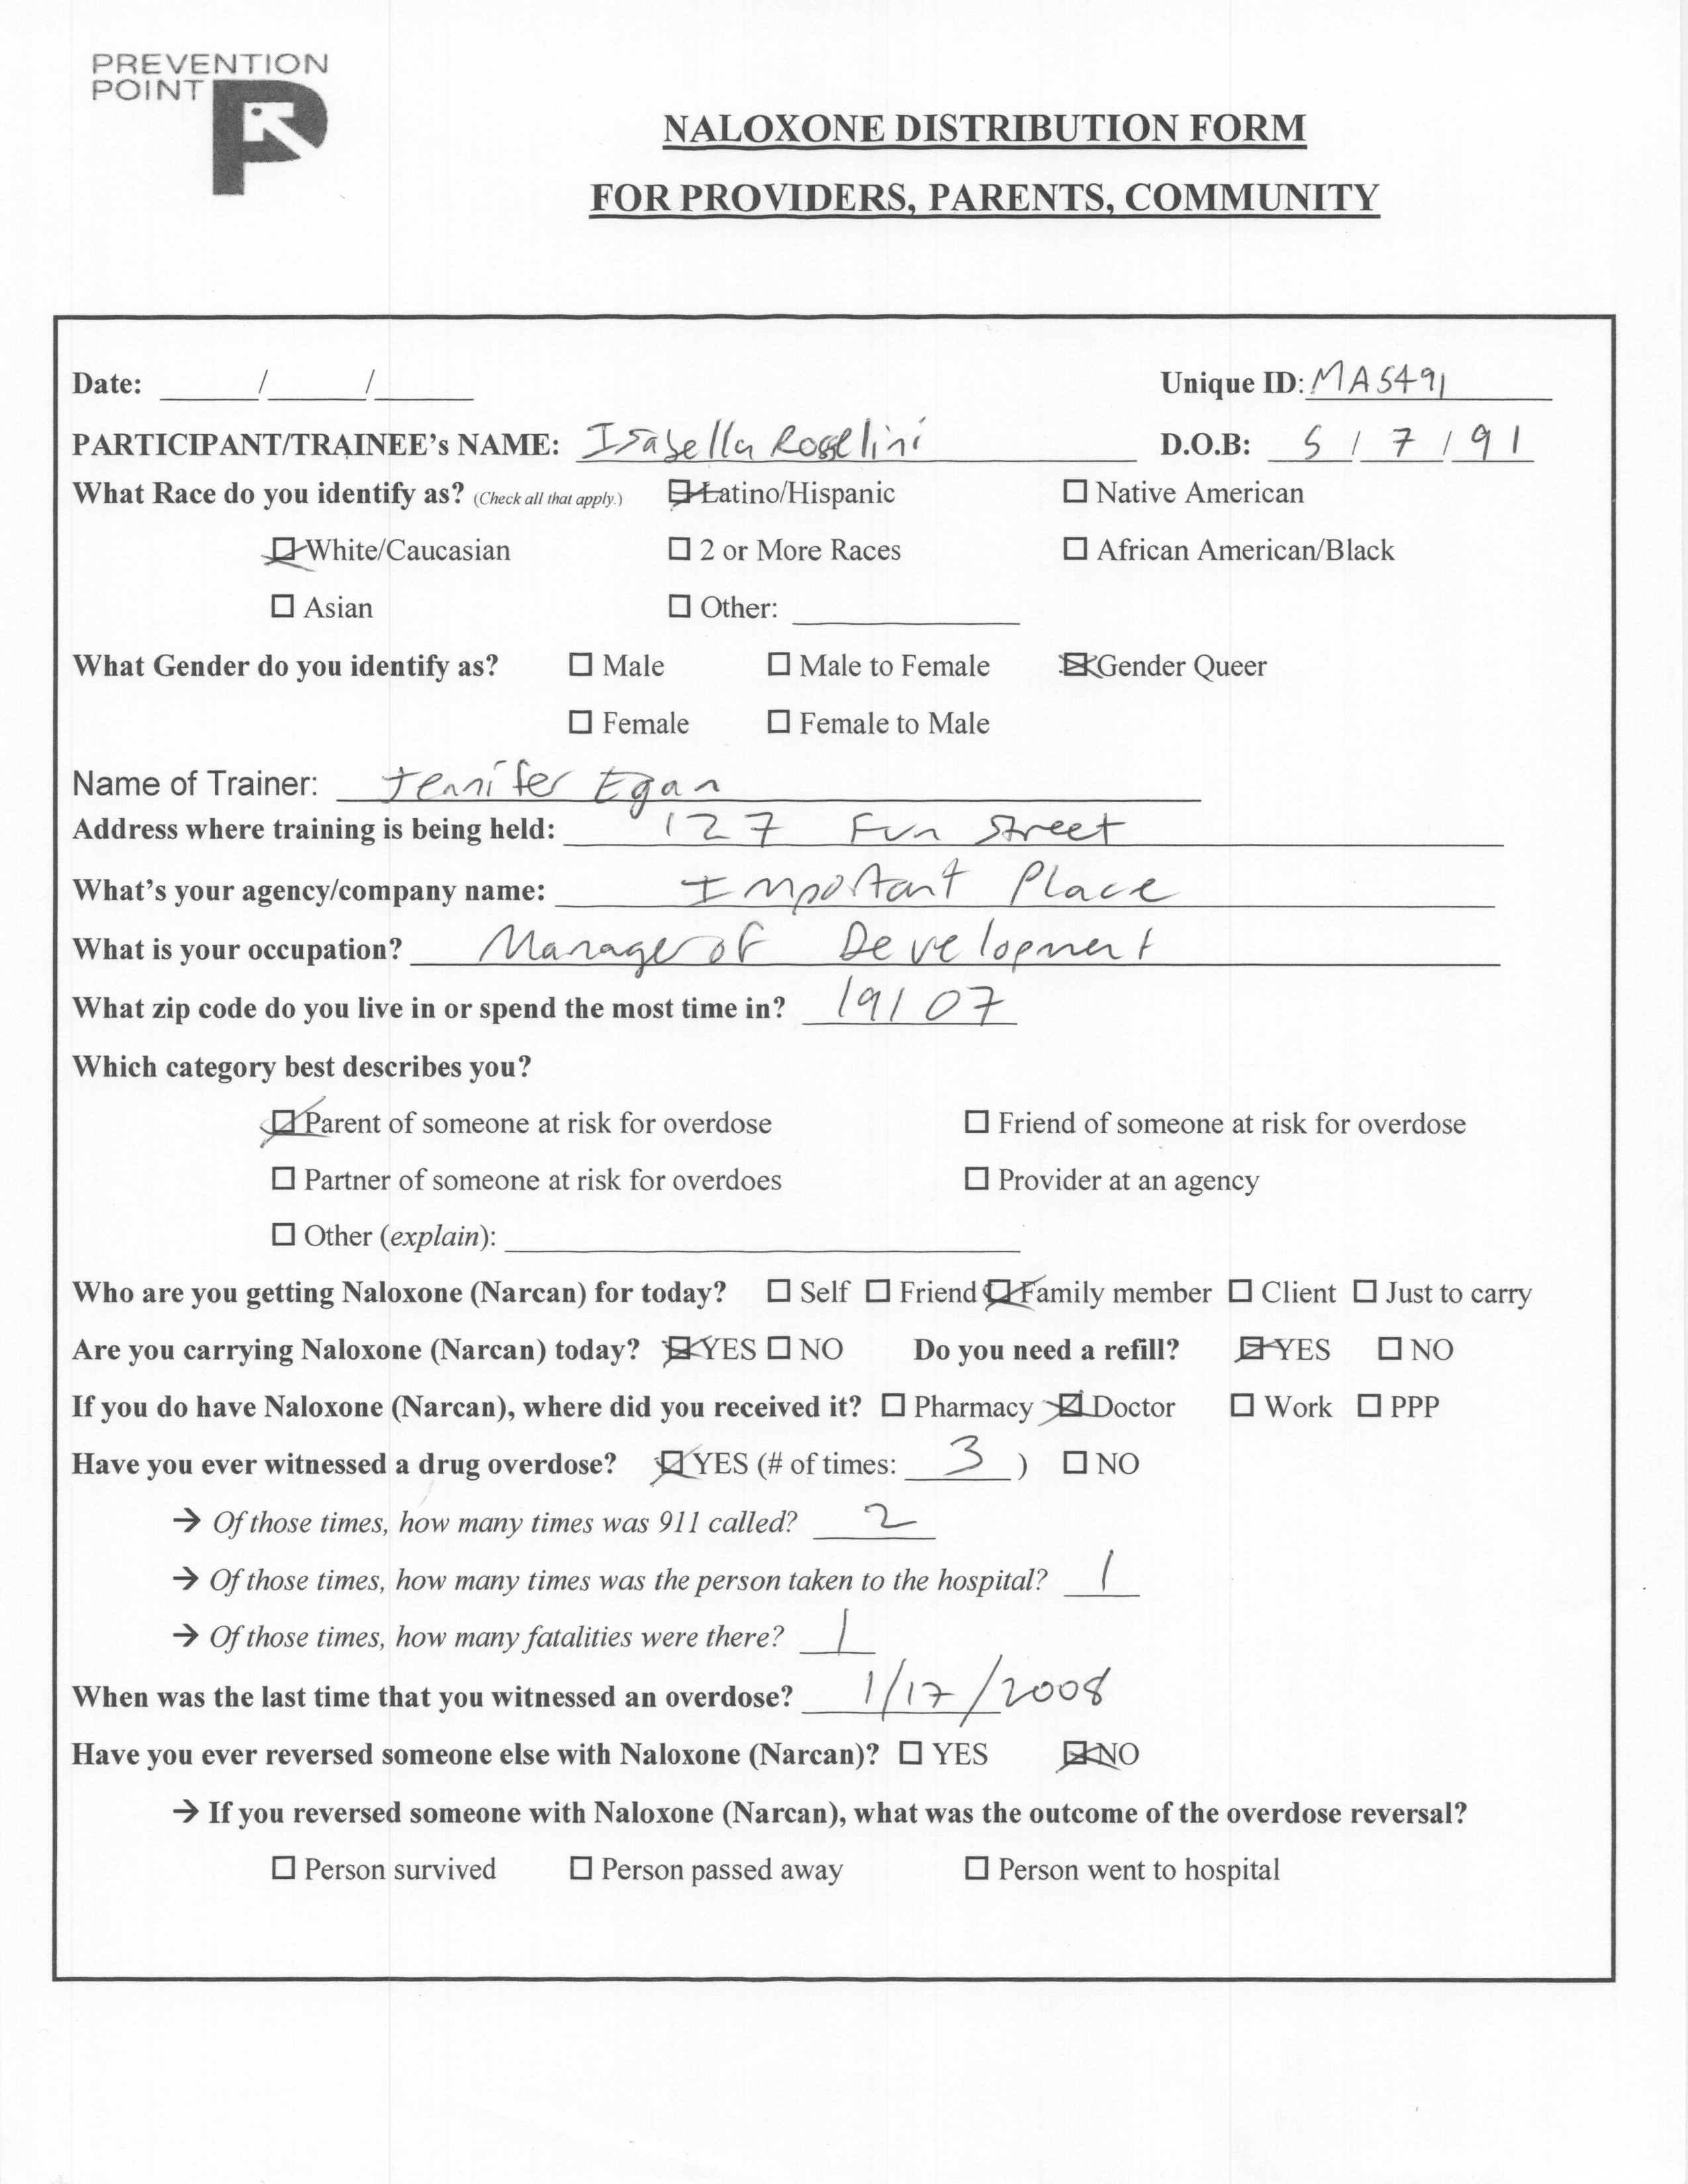 PREVENTION
POINT
NALOXONE DISTRIBUTION FORM
FOR PROVIDERS, PARENTS, COMMUNITY
Date: _____/_____/_____ Unique ID: MA5491
PARTICIPANT/TRAINEE's NAME: Isabella Rosselini D.O.B: 5 / 7 / 91
What Race do you identify as? (Check all that apply.) ☒ Latino/Hispanic ☐ Native American
☒ White/Caucasian ☐ 2 or More Races ☐ African American/Black
☐ Asian ☐ Other: __________
What Gender do you identify as? ☐ Male ☐ Male to Female ☒ Gender Queer
☐ Female ☐ Female to Male
Name of Trainer: Jennifer Egan
Address where training is being held: 127 Fun Street
What's your agency/company name: Important Place
What is your occupation? Manager of Development
What zip code do you live in or spend the most time in? 19107
Which category best describes you?
☒ Parent of someone at risk for overdose ☐ Friend of someone at risk for overdose
☐ Partner of someone at risk for overdoes ☐ Provider at an agency
☐ Other (explain): __________
Who are you getting Naloxone (Narcan) for today? ☐ Self ☐ Friend ☒ Family member ☐ Client ☐ Just to carry
Are you carrying Naloxone (Narcan) today? ☒ YES ☐ NO Do you need a refill? ☒ YES ☐ NO
If you do have Naloxone (Narcan), where did you received it? ☐ Pharmacy ☒ Doctor ☐ Work ☐ PPP
Have you ever witnessed a drug overdose? ☒ YES (# of times: 3 ) ☐ NO
→ Of those times, how many times was 911 called? 2
→ Of those times, how many times was the person taken to the hospital? 1
→ Of those times, how many fatalities were there? 1
When was the last time that you witnessed an overdose? 1/17/2008
Have you ever reversed someone else with Naloxone (Narcan)? ☐ YES ☒ NO
→ If you reversed someone with Naloxone (Narcan), what was the outcome of the overdose reversal?
☐ Person survived ☐ Person passed away ☐ Person went to hospital